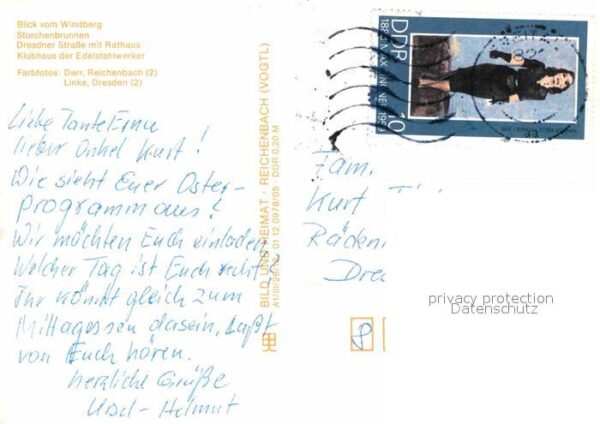 Blick vom Windberg
Storchenbrunnen
Dresdner Straße mit Rathaus
Klubhaus der Edelstahlwerker
Farbfotos: Darr, Reichenbach (2)
Linke, Dresden (2)
Liebe Tante Erna
lieber Onkel Kurt!
Wie sieht Euer Oster-
programm aus?
Wir möchten Euch einladen
Welcher Tag ist Euch recht?
Ihr könnt gleich zum
Mittagessen dasein. Laßt
von Euch hören.
herzliche Grüße
Helmut
BILD UND HEIMAT · REICHENBACH (VOGTL)
01 12 0978/05 · DDR 0,20 M
DDR
10
Fam.
Kurt
privacy protection
Datenschutz
8